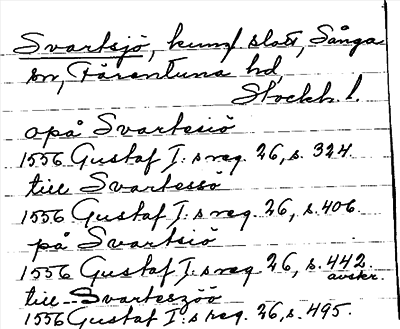 Svartsjö, kungl slott, Sånga
sn, Färentuna hd,
Stockh. l.
opå Svartesiö
1556 Gustaf I:s reg. 26, s. 324.
till Svartessö
1556 Gustaf I:s reg. 26, s. 406.
på Svartsiö
1556 Gustaf I:s reg. 26, s. 442.
avskr.
till Svarteszöö
1556 Gustaf I:s reg. 26, s. 495.